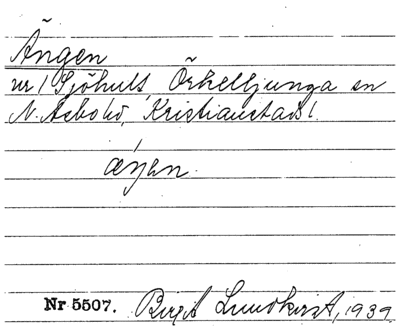 Ängen
nr 1 Sjöhult, Örkelljunga sn
N. Åsbo hd, Kristianstads l.
Nr 5507. Birgit Lundkvist, 1939